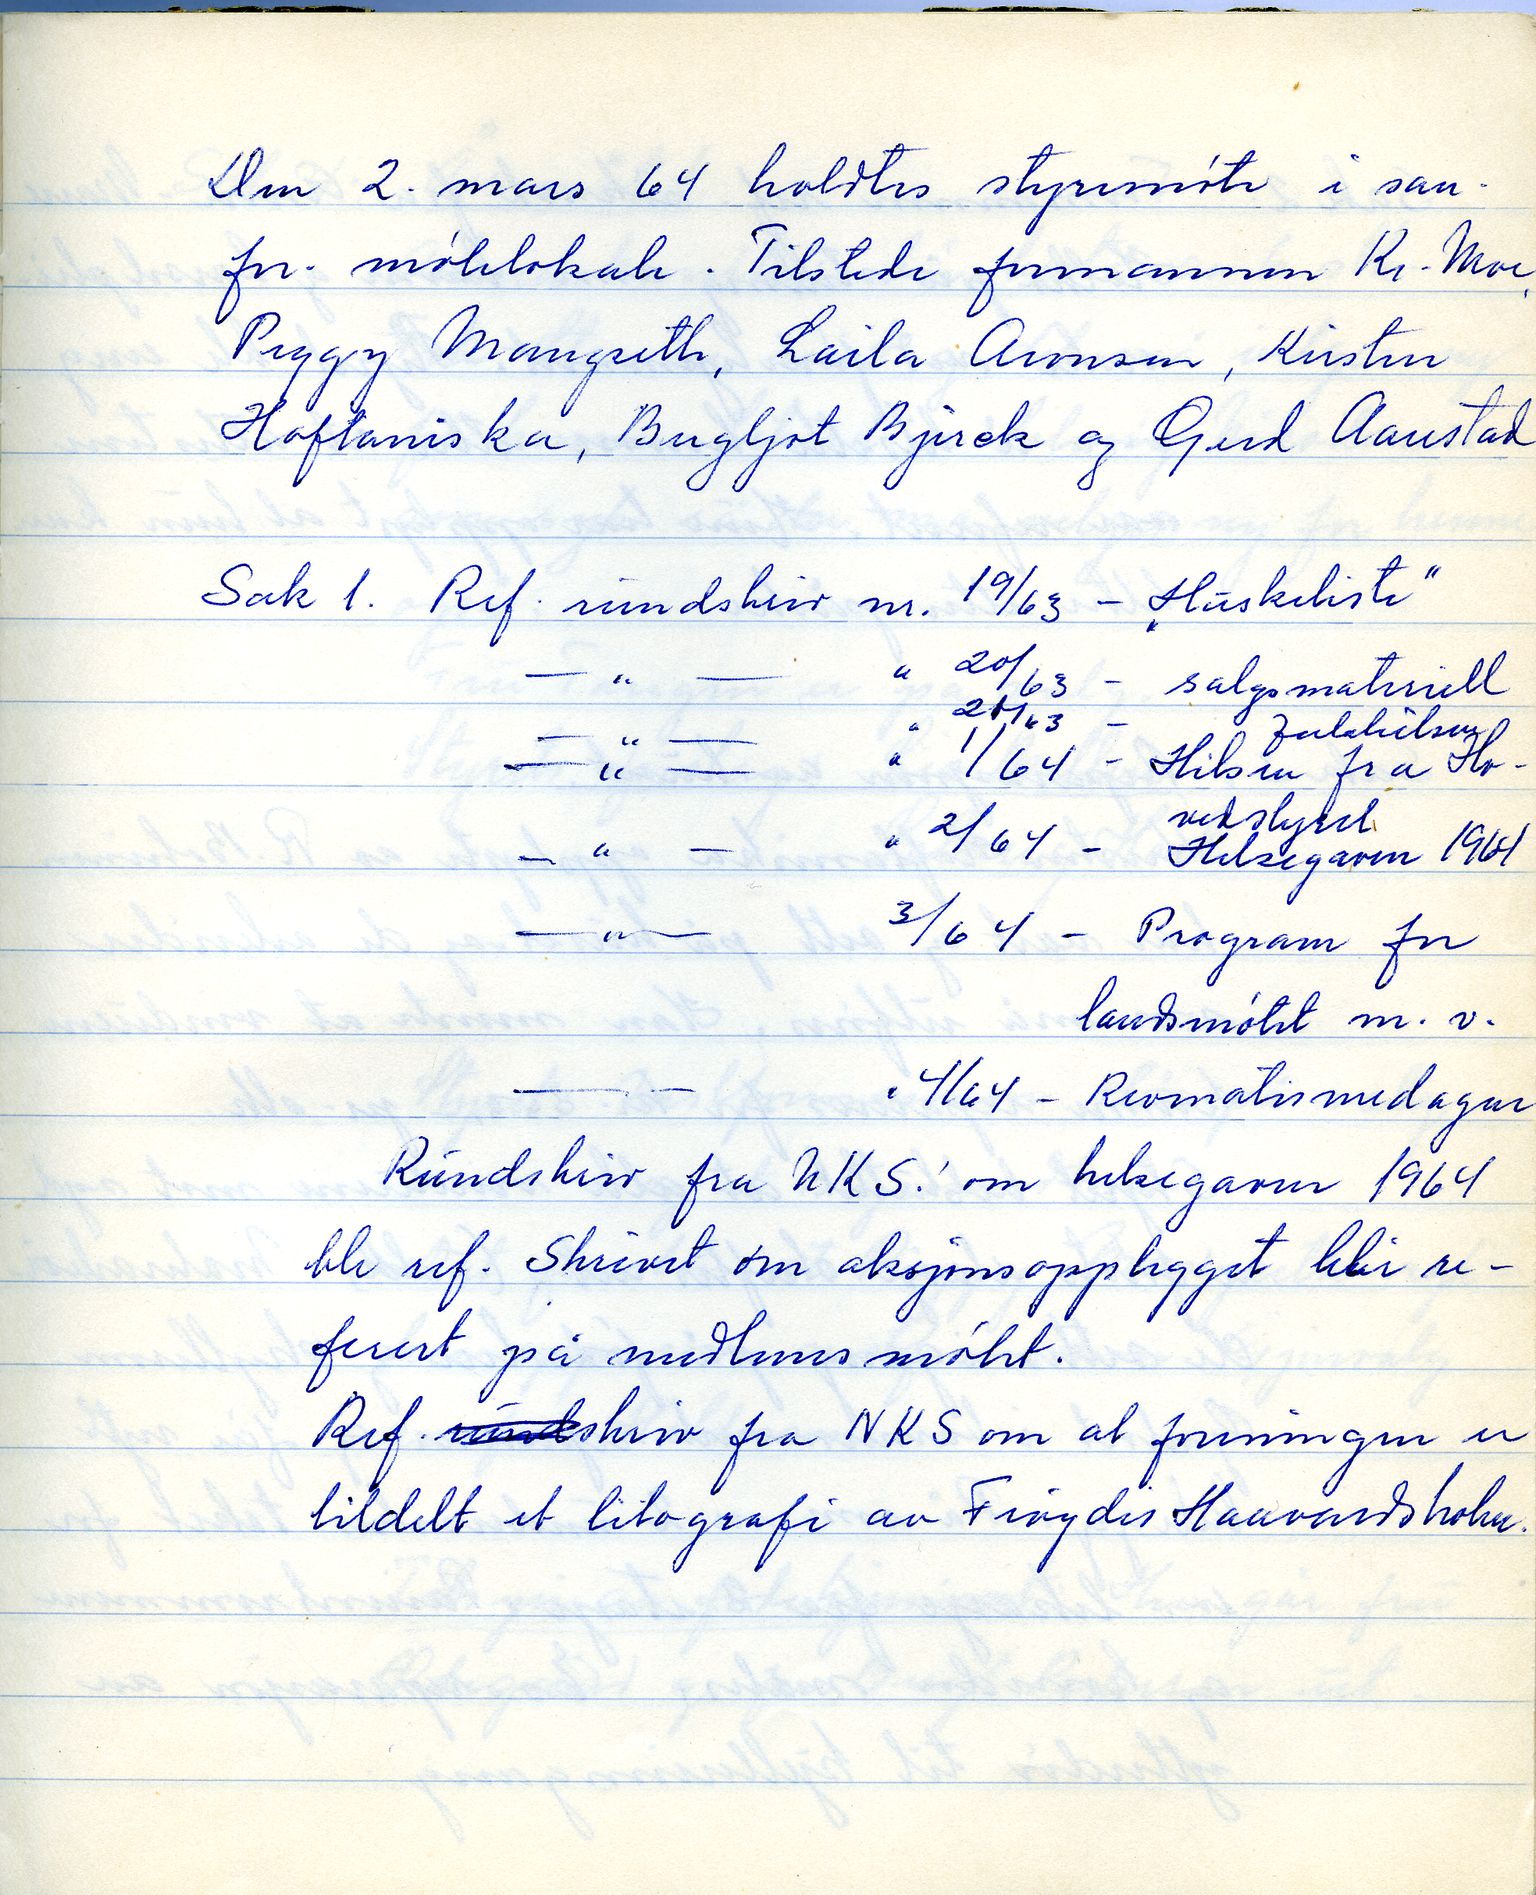 Den 2. mars 64 holdtes styremöte i san.
for. mötelokale. Tilstede formannen Kr. Moe,
Peggy Mangseth, Laila Aronsen, Kirsten
Haftorniska, Bergljot Bjerck og Gerd Aarestad
Sak 1. Ref. rundskriv nr. 19/63 – „Huskeliste"
— " — " 20/63 – salgsmateriell
— " — " 21/63 – Julehilsen
— " — " 1/64 – Hilsen fra Ho-
vedstyret
— " — " 2/64 – Helsegaven 1964
— " — 3/64 – Program for
landsmötet m. v.
— — " 4/64 – Revmatismedagen
Rundskriv fra NKS. om helsegaven 1964
ble ref. Skrivet om aksjonsopplegget blir re-
ferert på medlemsmötet.
Ref. rundskriv fra NKS om at foreningen er
tildelt et litografi av Frøydis Haavardsholm.